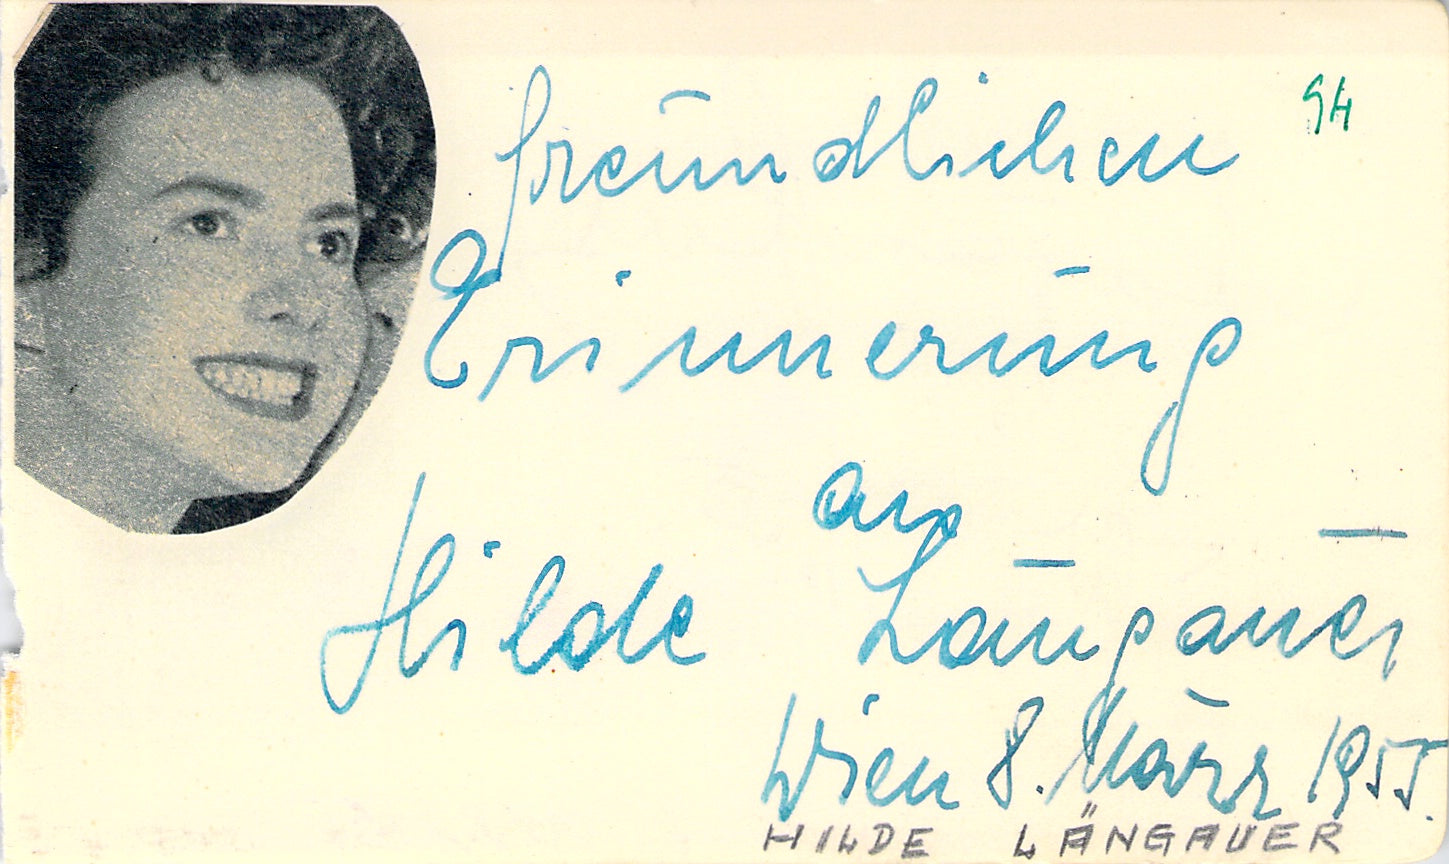 94
freundlichen
Erinnerung
an
Hilde Längauer
Wien 8. März 1955.
HILDE LÄNGAUER